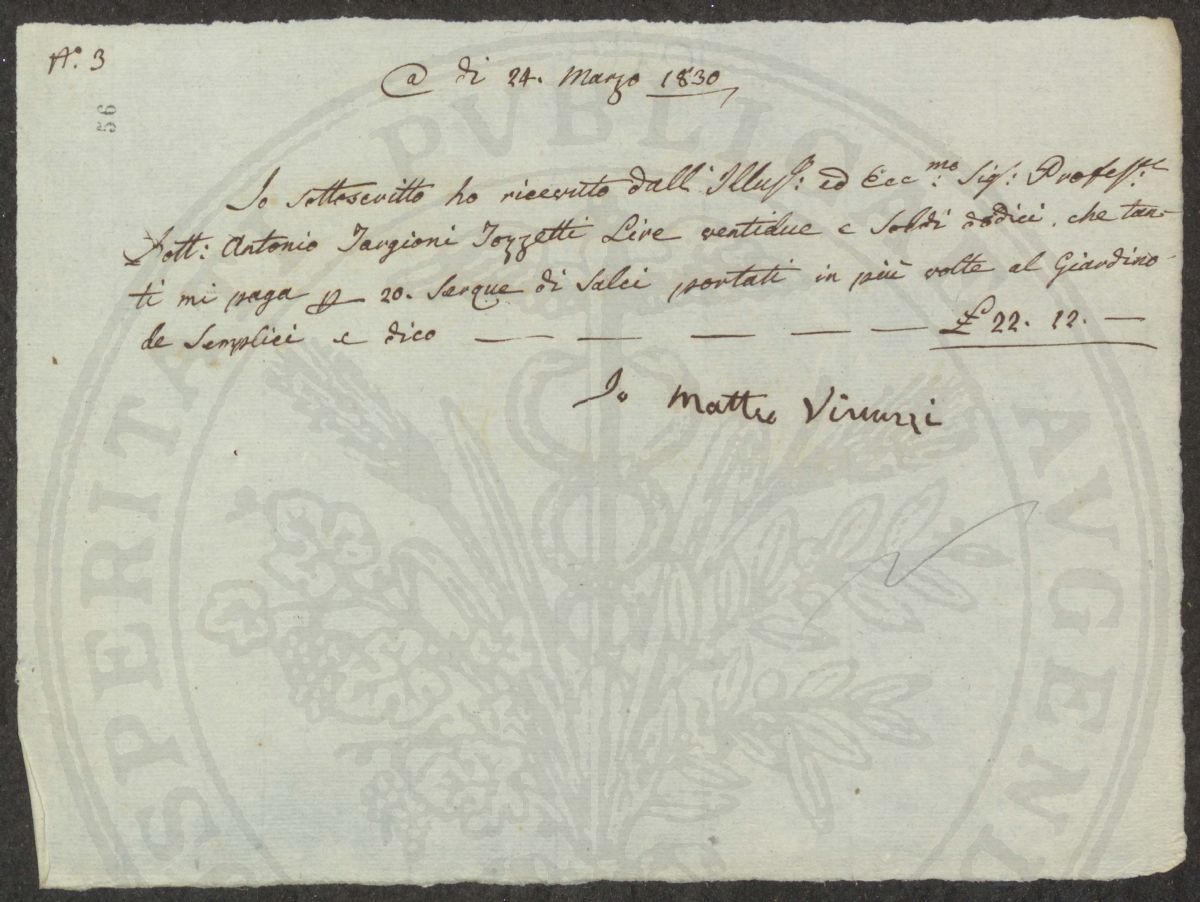 N.° 3
@ di 24. Marzo 1830
56
Io sottoscritto ho ricevuto dall' Illus.: ed Ecc.mo Sig.: Profess.re
Dott: Antonio Targioni Tozzetti Lire ventidue e Soldi dodici, che tan-
ti mi paga p 20. Serque di Salci portati in più volte al Giardino
de Semplici e dico — — — — — £ 22. 12. —
Io Matteo
PUBLICAE AUGEND
SPERITA